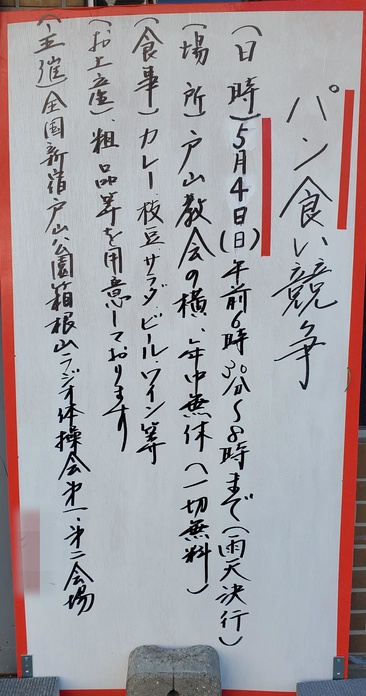 パン食い競争
(日時)5月4日(日)午前6時30分~8時まで(雨天決行)
(場所)戸山教会の横、年中無休(一切無料)
(食事)カレー、枝豆、サラダ、ビール、ワイン等
(お土産)粗品等を用意しております
(主催)全国新宿戸山公園箱根山ラジオ体操会第一、第二会場